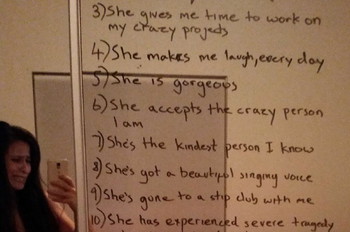 3) She gives me time to work on
my crazy projects
4) She makes me laugh, every day
5) She is gorgeous
6) She accepts the crazy person
I am
7) She's the kindest person I know
8) She's got a beautiful singing voice
9) She's gone to a strip club with me
10) She has experienced severe tragedy